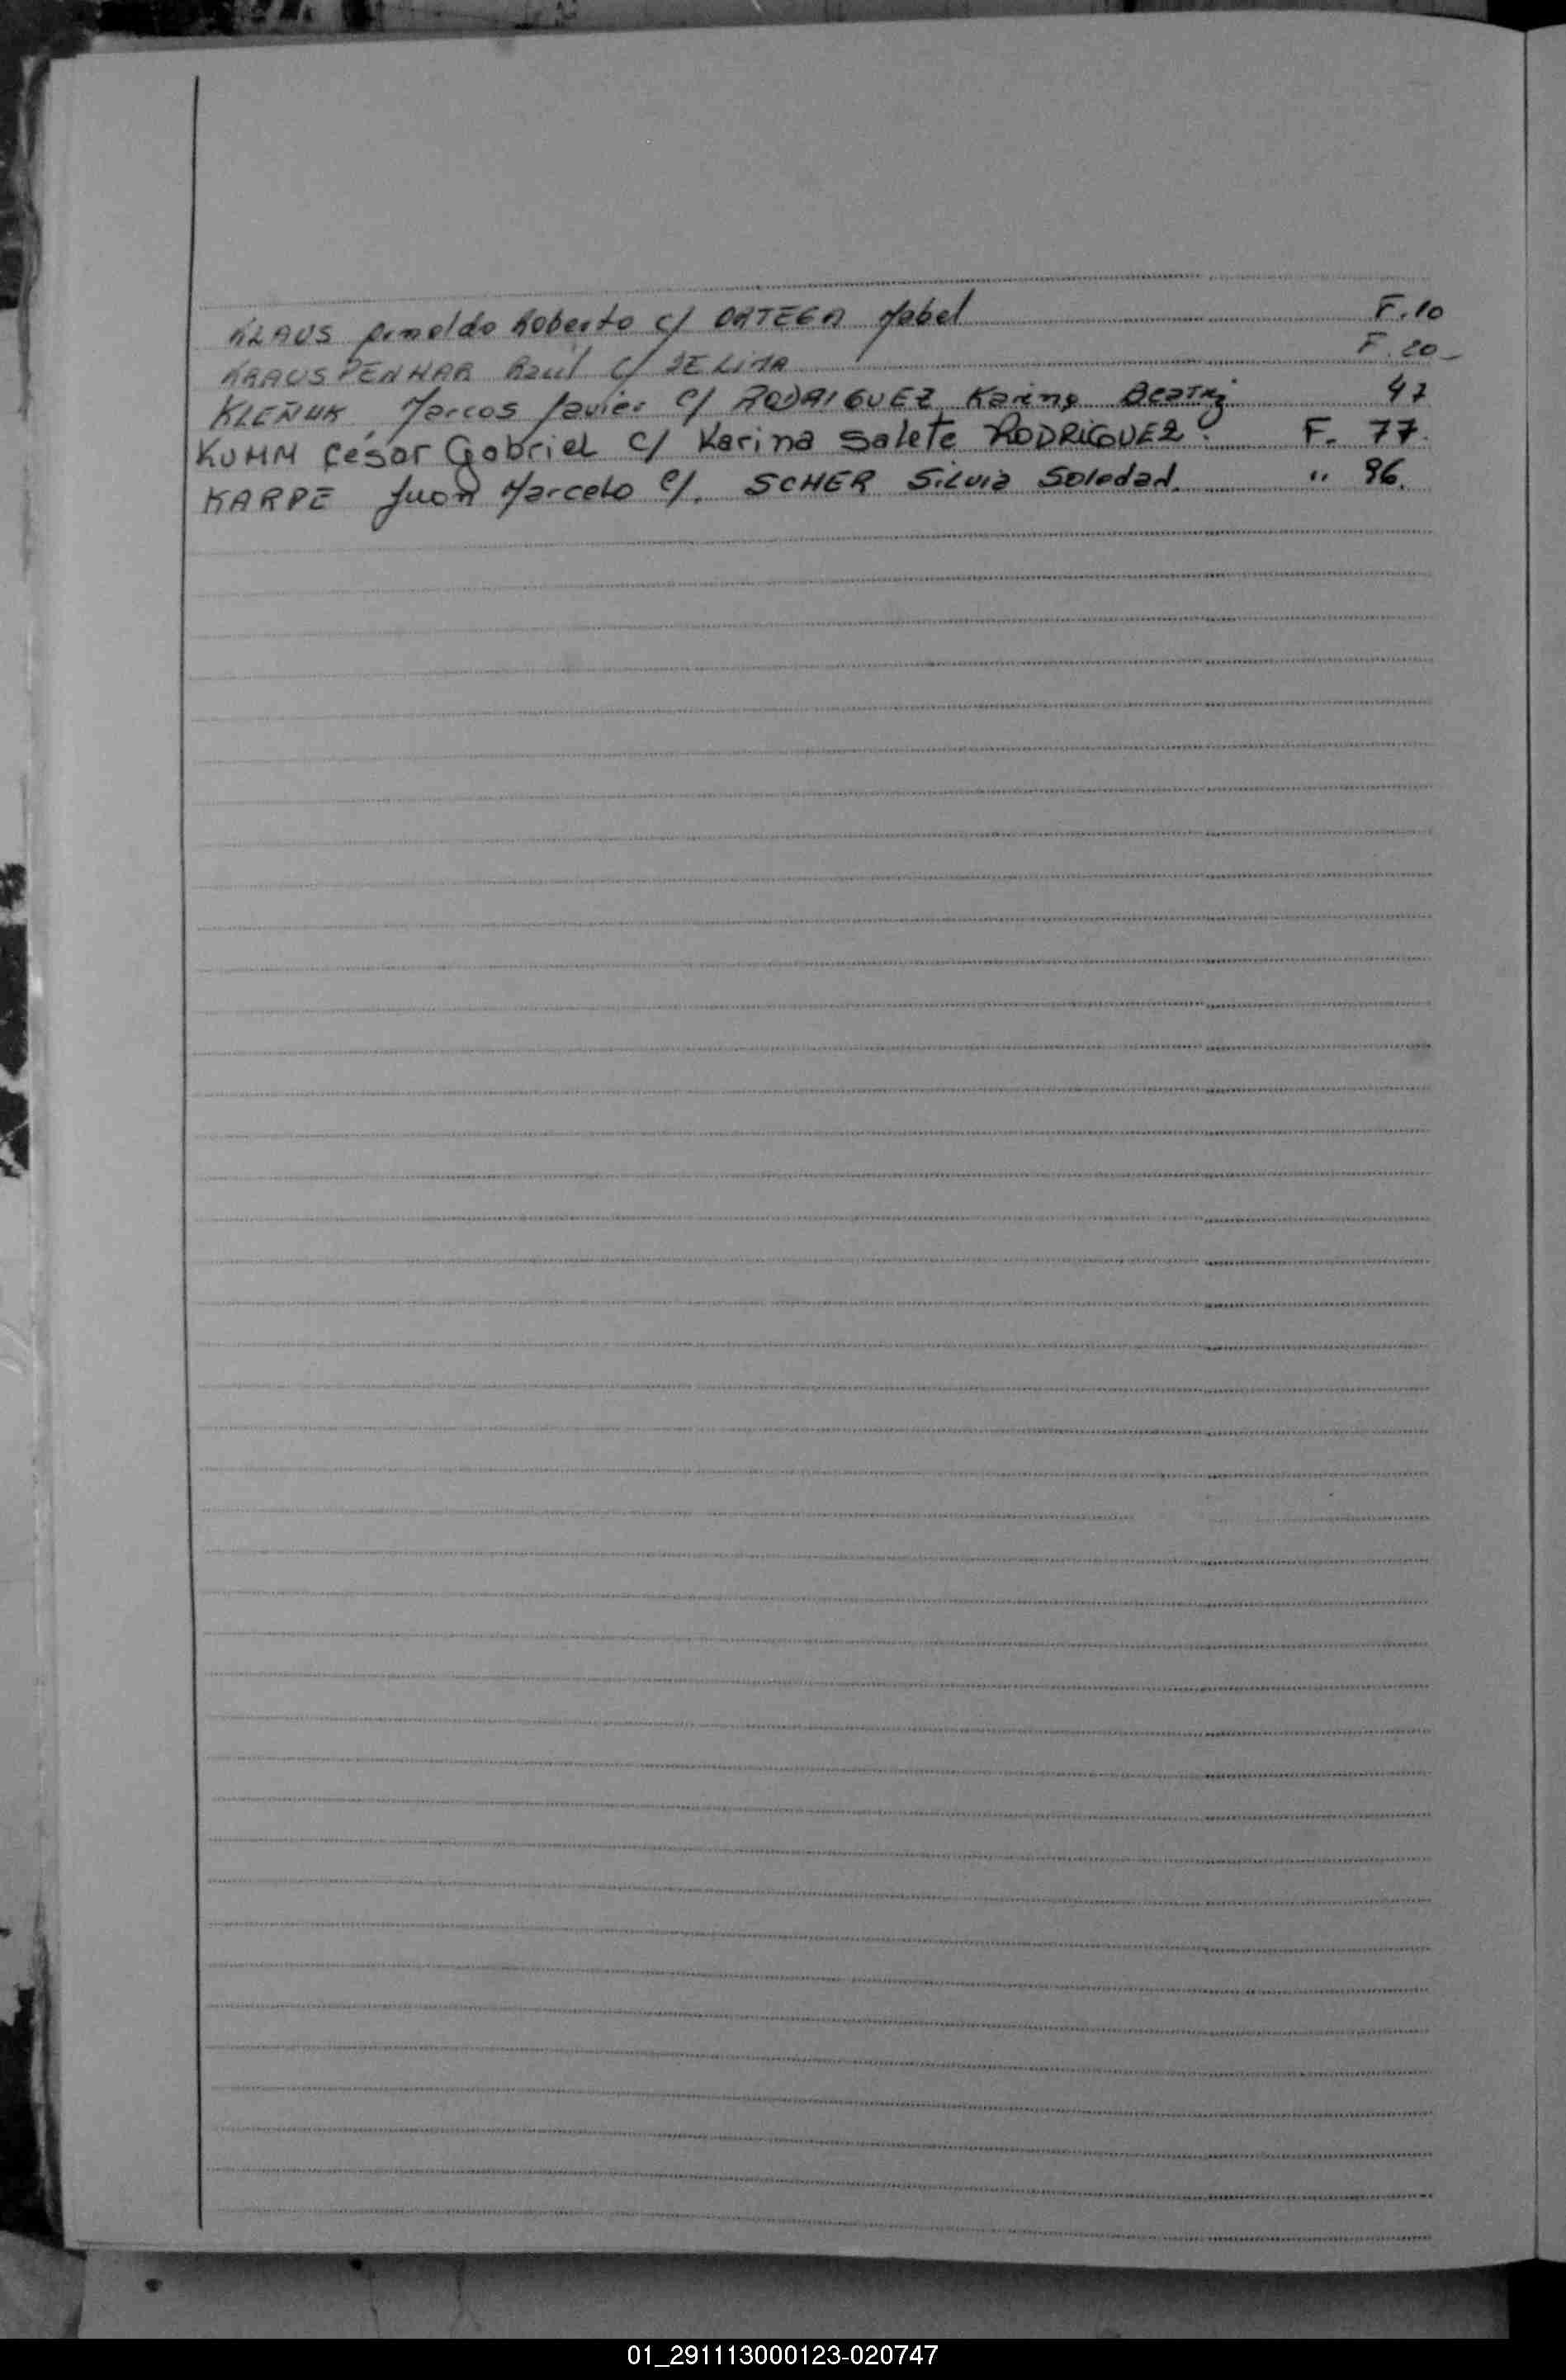 KLAUS Arnoldo Roberto c/ ORTEGA Mabel F. 10
KRAUSPENHAR Raúl c/ DE LIMA F. 20_
KLEÑUK Marcos Javier c/ RODRIGUEZ Karina Beatriz 47
KUHM César Gabriel c/ Karina Salete RODRIGUEZ. F. 77.
KARPE Juan Marcelo c/. SCHER Silvia Soledad. " 96.
01_291113000123-020747